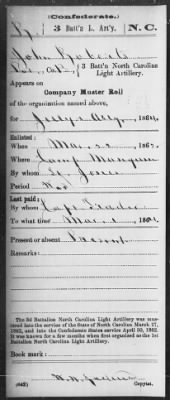 (Confederate.)
3 Batt'n L. Art'y. N.C.
John Roberts
3 Batt'n North Carolina
Light Artillery.
Appears on
Company Muster Roll
of the organization named above,
for July & Aug, 1864.
Enlisted:
When Mar. 22 1862.
Where Camp Mangum
By whom
Period War
Last paid:
By whom Capt
To what time Mar. 1 1864.
Present or absent Present
Remarks:
The 3d Battalion North Carolina Light Artillery was mustered into the service of the State of North Carolina March 27, 1862, and into the Confederate States service April 30, 1862. It was known for a few months when first organized as the 1st Battalion North Carolina Light Artillery.
Book mark:
(642) Copyist.